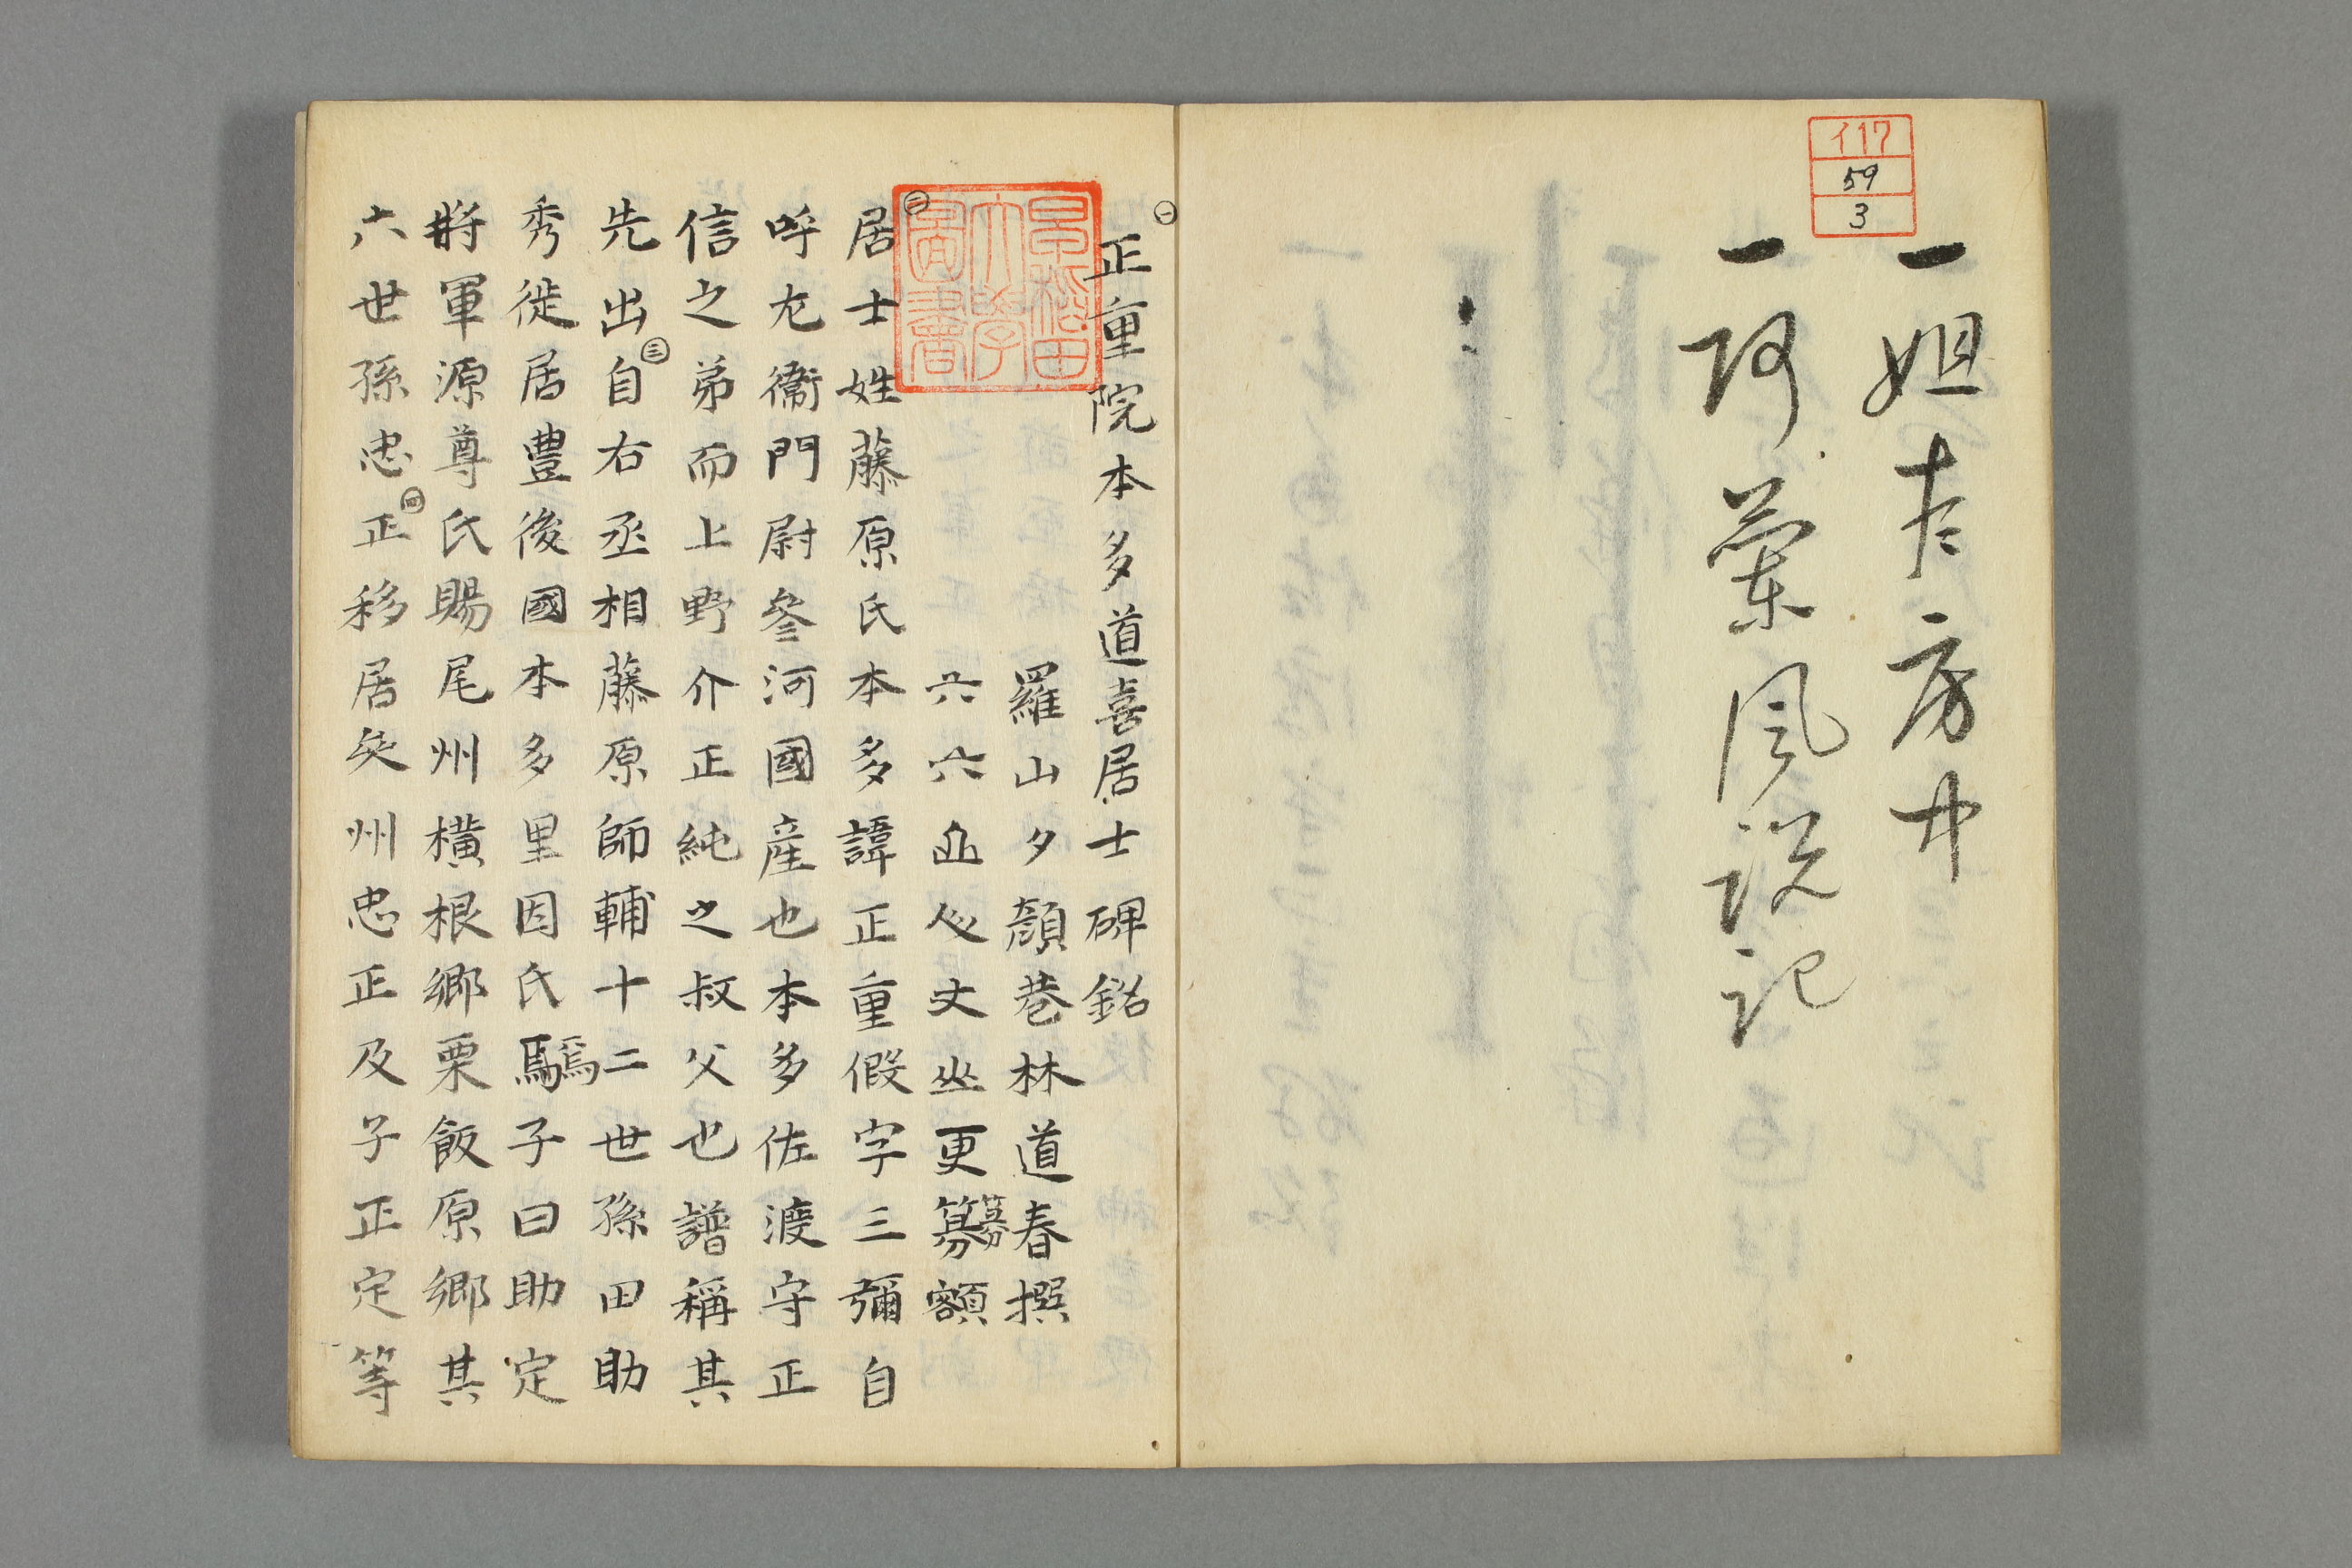 イ17
59
3
一 妲 房
一 阿蘭風説記
㊀
正重院本多道喜居士碑銘
羅山夕顔巷林道春撰
六六山心丈山更篆篆額
㊁
居士姓藤原氏本多諱正重假字三彌自
呼左衞門尉參河國産也本多佐渡守正
信之弟而上野介正純之叔父也譜稱其
先出㊂自右丞相藤原師輔十二世孫田助
秀徙居豊後國本多里因氏焉焉子曰助定
將軍源尊氏賜尾州横根郷栗飯原郷其
六世孫忠㊃正移居矣州忠正及子正定等
早稲田大學圖書